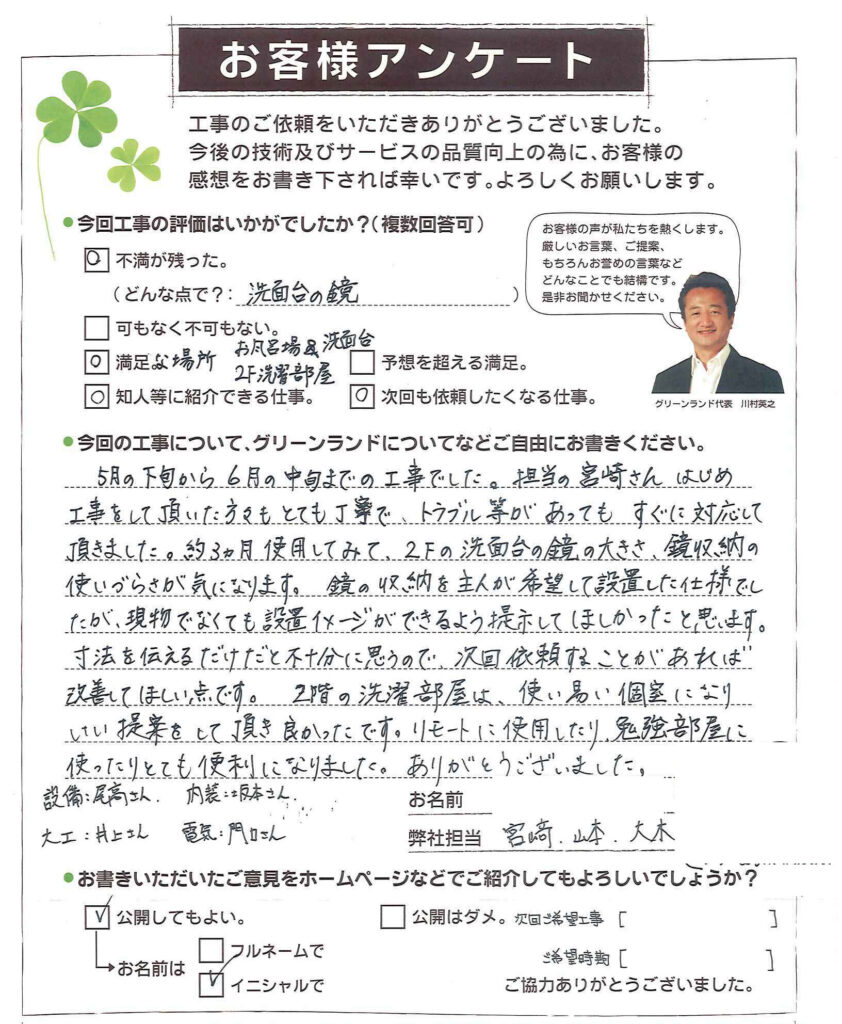 お客様アンケート
工事のご依頼をいただきありがとうございました。
今後の技術及びサービスの品質向上の為に、お客様の
感想をお書き下されば幸いです。よろしくお願いします。
●今回工事の評価はいかがでしたか？(複数回答可)
お客様の声が私たちを熱くします。
厳しいお言葉、ご提案、
もちろんお誉めの言葉など
どんなことでも結構です。
是非お聞かせください。
グリーンランド代表 川村英之
○ 不満が残った。
(どんな点で？: 洗面台の鏡)
□ 可もなく不可もない。
○ 満足な場所 お風呂場&洗面台 2F洗濯部屋 □ 予想を超える満足。
○ 知人等に紹介できる仕事。 ○ 次回も依頼したくなる仕事。
●今回の工事について、グリーンランドについてなどご自由にお書きください。
5月の下旬から6月の中旬までの工事でした。担当の宮崎さんはじめ
工事をして頂いた方々もとても丁寧で、トラブル等があってもすぐに対応して
頂きました。約3ヵ月使用してみて、2Fの洗面台の鏡の大きさ、鏡収納の
使いづらさが気になります。鏡の収納を主人が希望して設置した仕様でし
たが、現物でなくても設置イメージができるよう提示してほしかったと思います。
寸法を伝えるだけだと不十分に思うので、次回依頼することがあれば
改善してほしい点です。2階の洗濯部屋は、使い易い個室になり
いい提案をして頂き良かったです。リモートに使用したり、勉強部屋に
使ったりとても便利になりました。ありがとうございました。
設備:尾高さん 内装:坂本さん
大工:井上さん 電気:門口さん
お名前
弊社担当 宮崎.山本.大木
●お書きいただいたご意見をホームページなどでご紹介してもよろしいでしょうか？
☑ 公開してもよい。 □ 公開はダメ。 次回ご希望工事 [ ]
お名前は □ フルネームで
ご希望時期 [ ]
☑ イニシャルで
ご協力ありがとうございました。